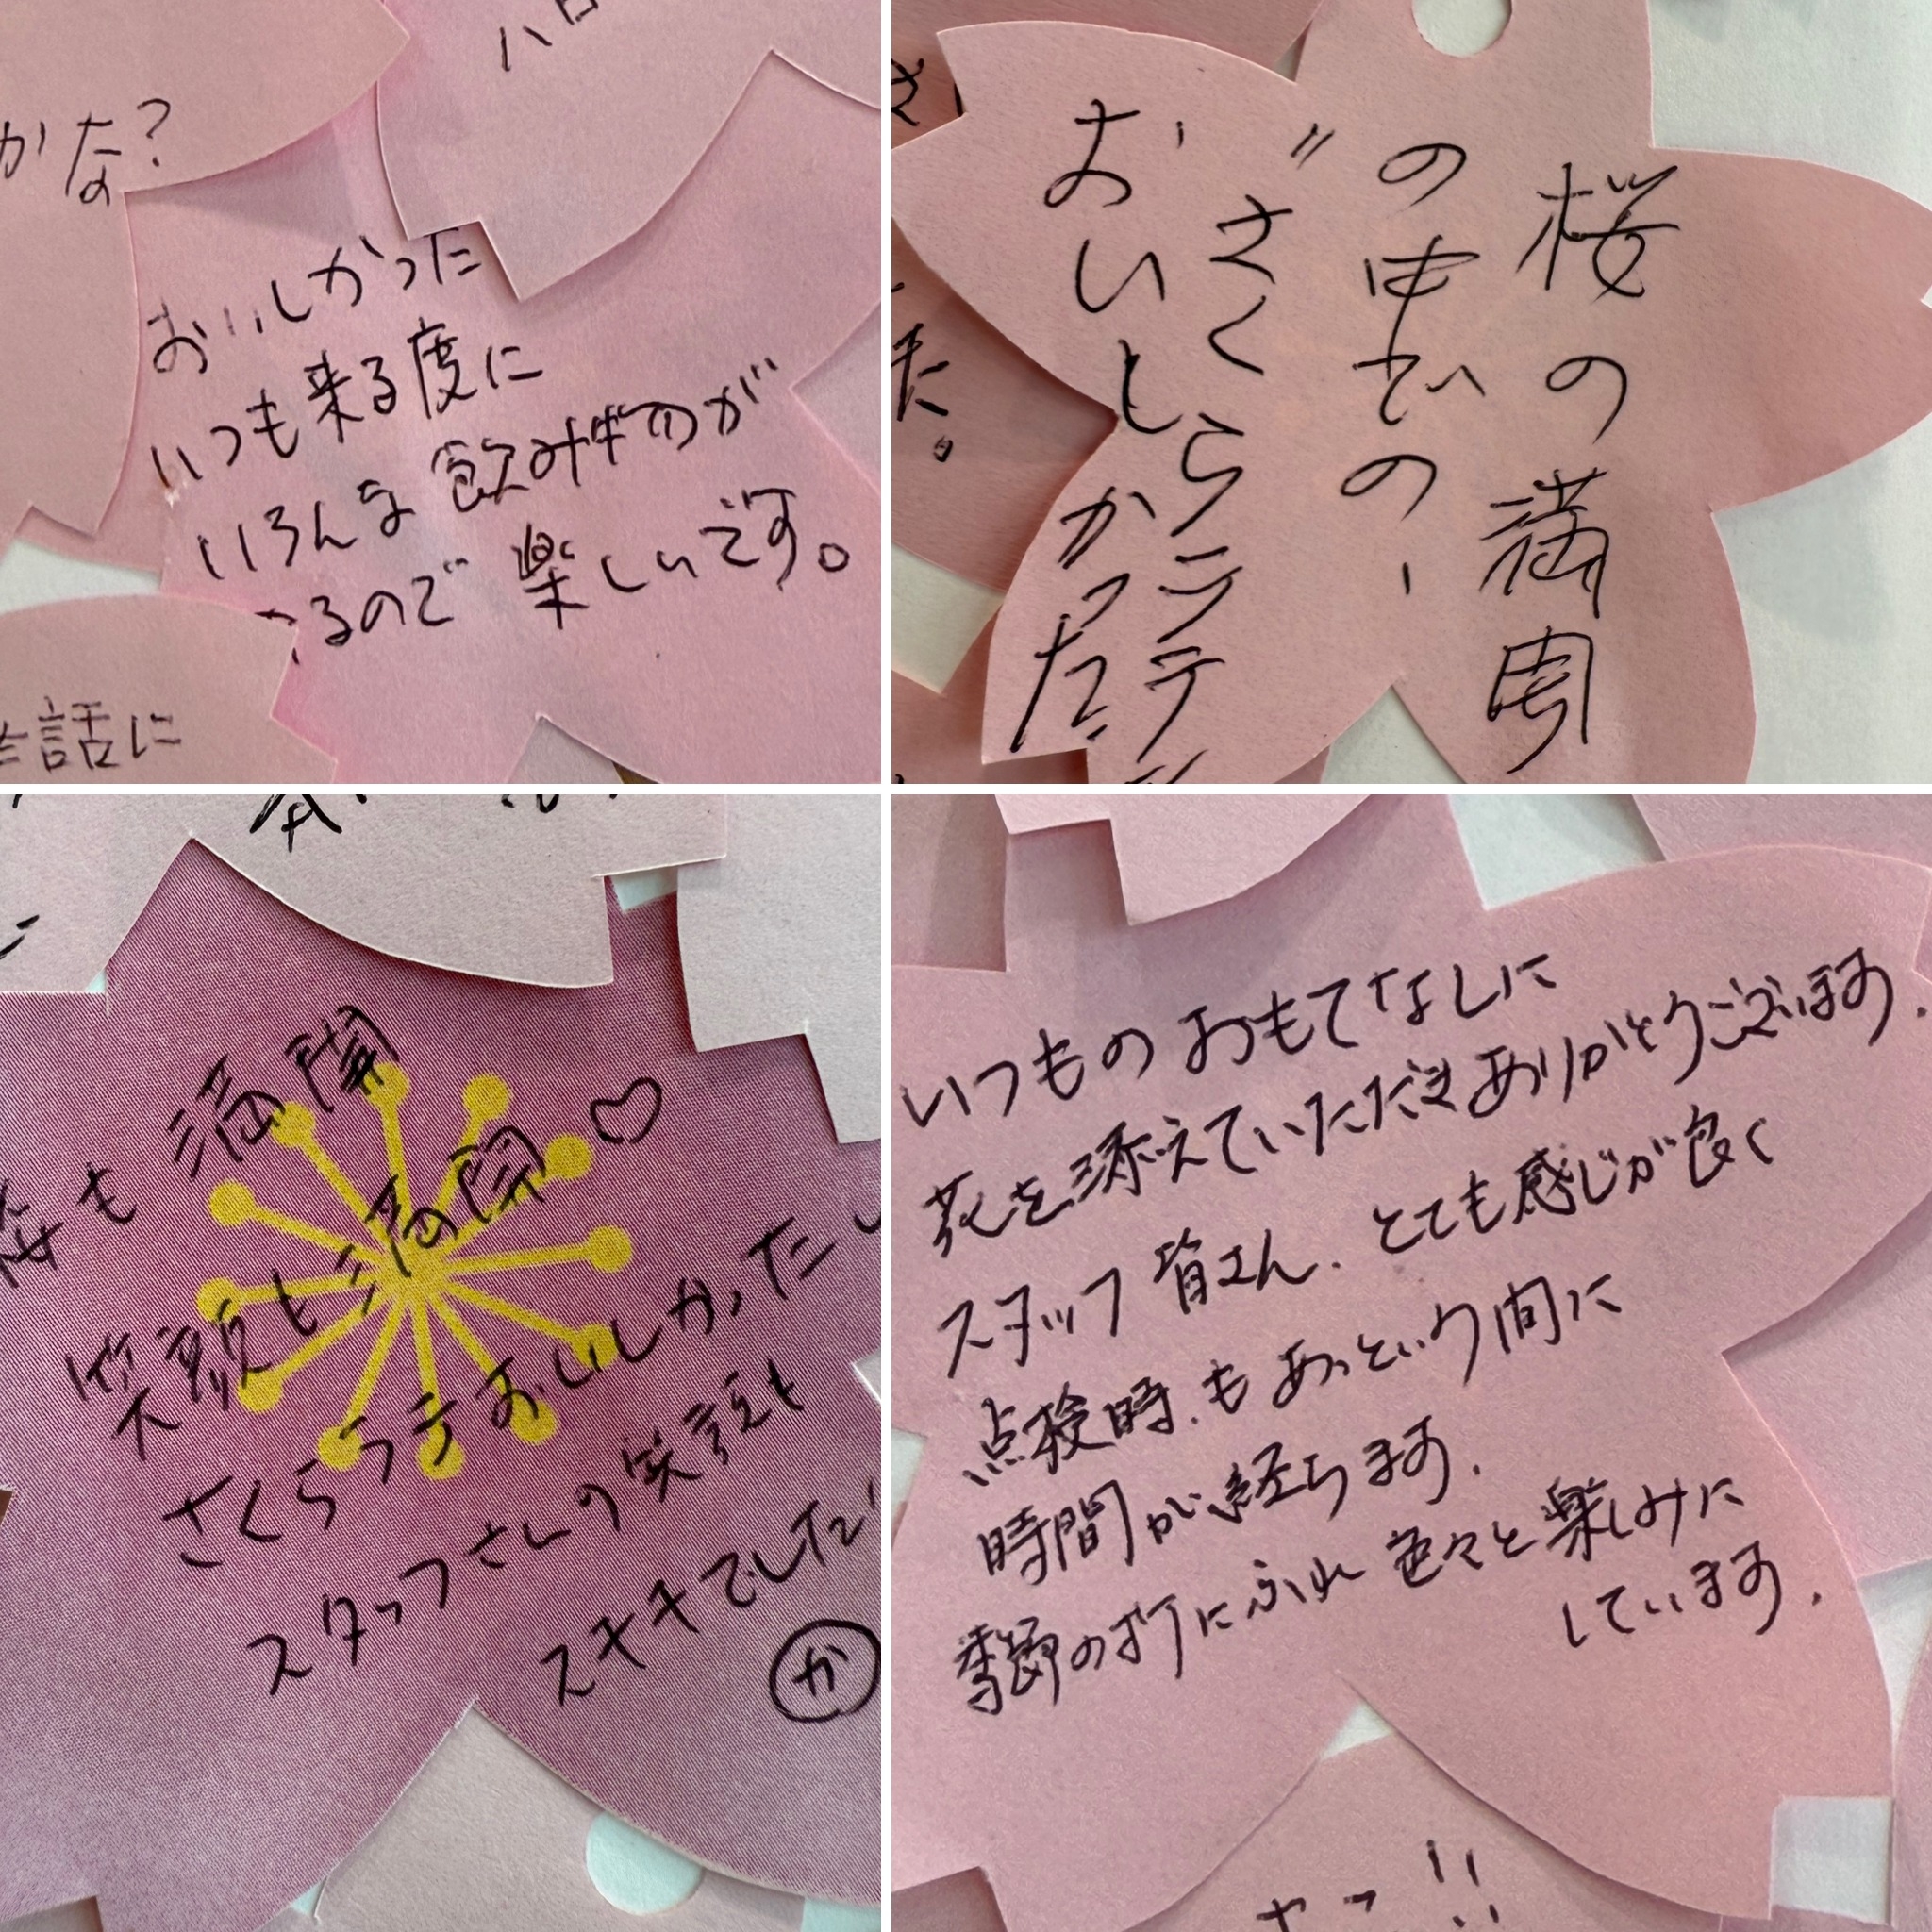 かな?
おいしかった
いつも来る度に
いろんな飲みものが
るので 楽しいです。
話に
桜の満開
の中での、
"さくらラテ
おいしかった
た。
桜も 満開
笑顔も満開♡
さくらラテおいしかったし
スタッフさんの笑顔も
ステキでした
か
いつもの おもてなしに
花を添えていただきありがとうございます.
スタッフ 皆さん、とても感じが良く
点検時、もあっという間に
時間が経ちます.
季節の折にふれ 色々と楽しみに
しています.
やっ!!